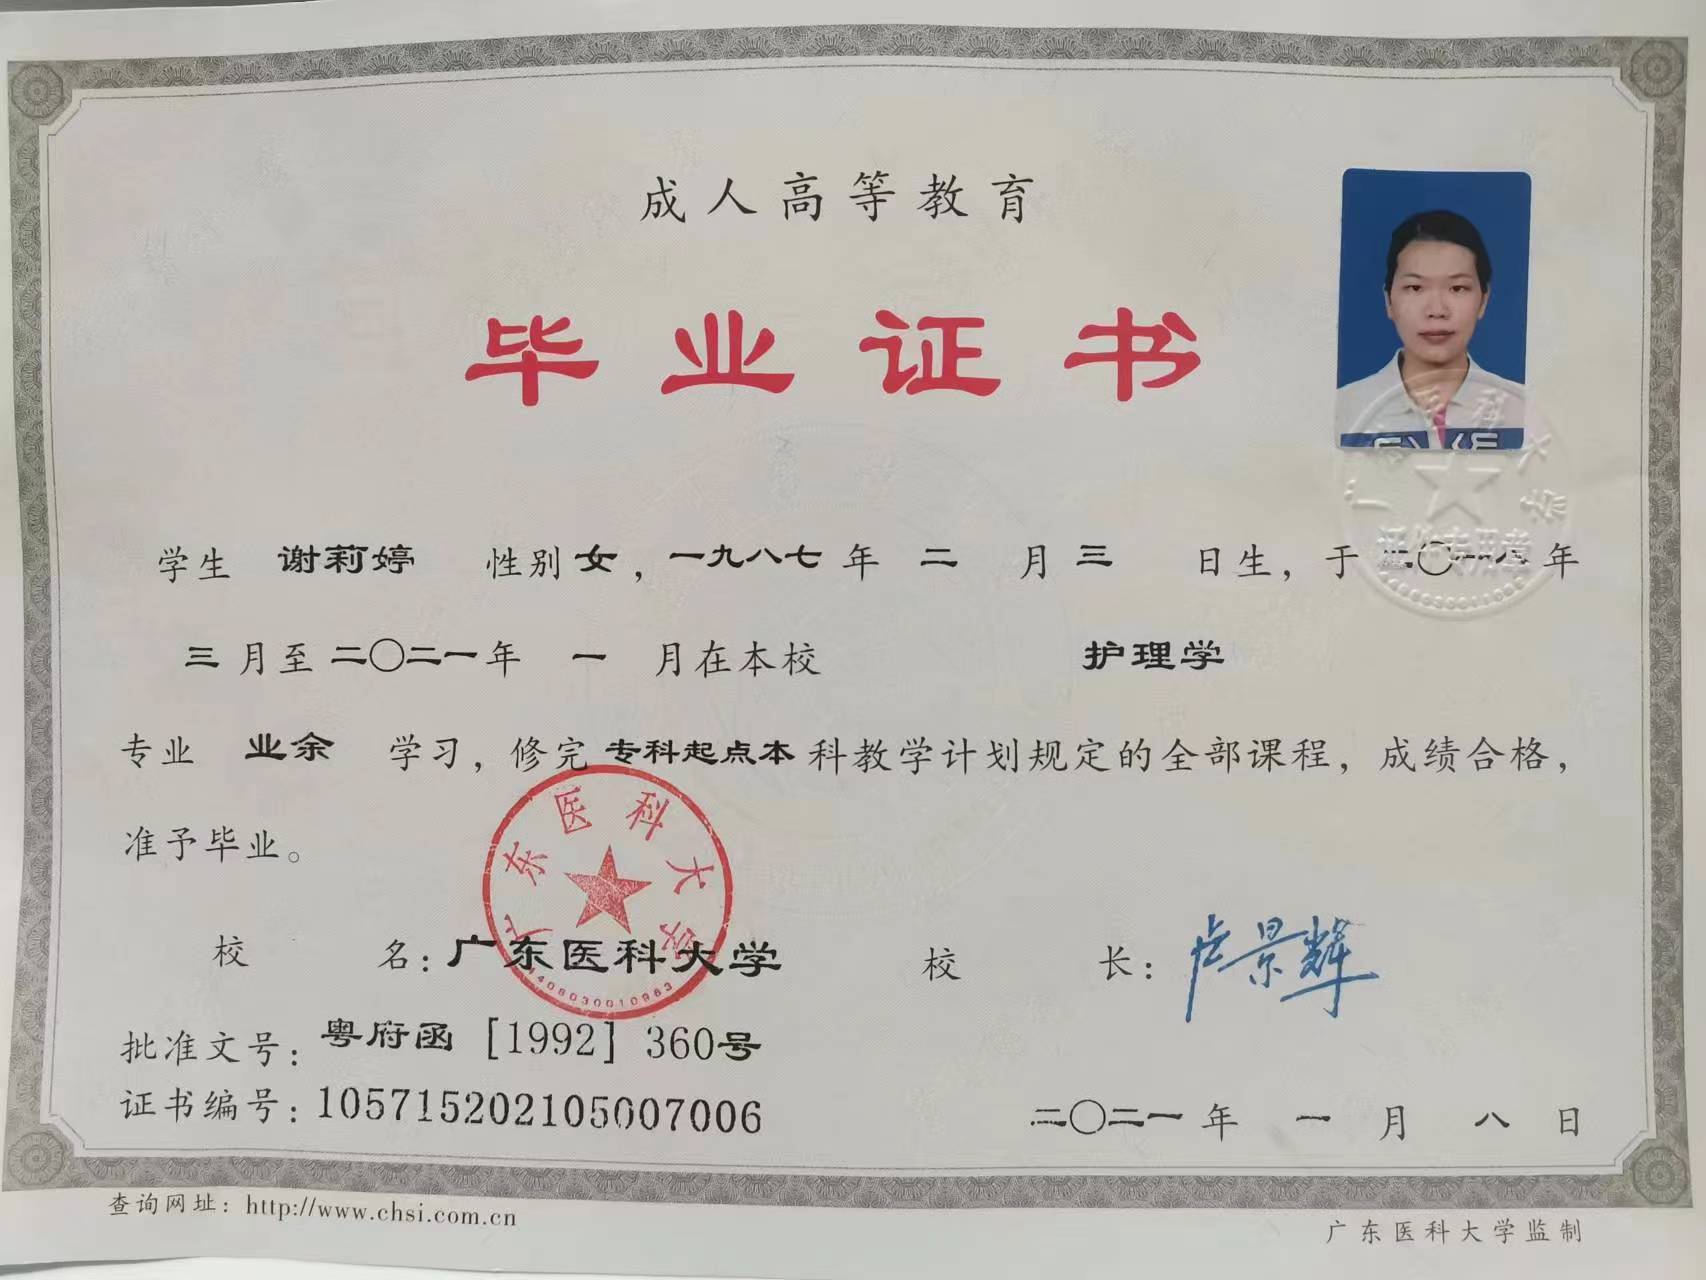 成人高等教育
毕业证书
学生 谢莉婷 性别 女，一九八七 年 二 月 三 日生，于 二〇一八 年
三 月至 二〇二一 年 一 月在本校 护理学
专业 业余 学习，修完 专科起点本 科教学计划规定的全部课程，成绩合格，
准予毕业。
校 名：广东医科大学 校 长：卢景辉
广东医科大学
4408030010963
批准文号：粤府函［1992］360号
证书编号：105715202105007006
二〇二一 年 一 月 八 日
查询网址：http://www.chsi.com.cn
广东医科大学监制